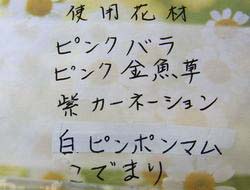 使用花材
ピンクバラ
ピンク金魚草
紫カーネーション
白ピンポンマム
こでまり